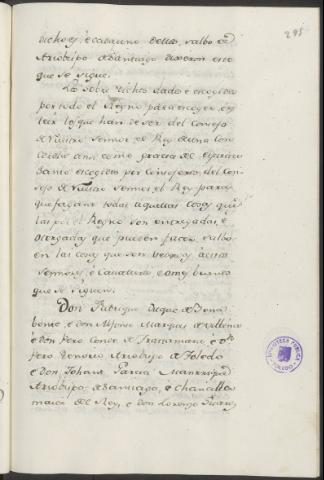 295
dichos, é cada uno dellos, salbo el
Arzobispo de Santiago dixeron esto
que se sigue.
Los sobre dichos dados é escogidos
por todo el Regno para escoger, é es
leir los que han de ser del Consejo
de Nuestro Sennor el Rey de una con
cordia ansi como gracia del Espiritu
Santo escogieron por Consejeros del Con
sejo de Nuestro Sennor el Rey para
que fagan todas aquellas cosas que
las por el Regno son entregadas, é
otorgadas que pueden facer, salbo
en las cosas que son
sennores, é Cavalleros é omes buenos
que se siguen:
Don Fadrique Duque de Bena
bente, é don Alfonso Marques de Villena
é don Pero Conde de Trastamara, é Dn
Pero Tenorio Arzobispo de Toledo
é Don Johan Garcia Manrrique
Arzobispo de Santiago, é Chanciller
maior del Rey, é don Lorenzo Suarez
BIBLIOTECA PUBLICA
TOLEDO